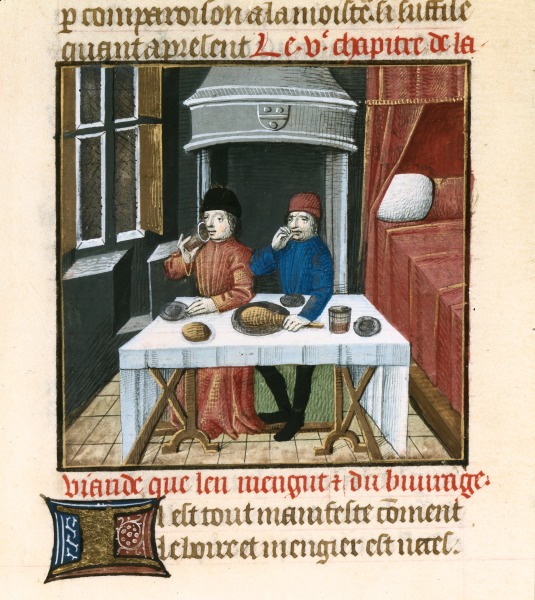 p comparoison a la moiste. si suffise
quant apresent Le .vᵉ. chapitre de la
viande que len mengut ⁊ du biuurage.
Il est tout manifeste cōment
le boire et mengier est neces.